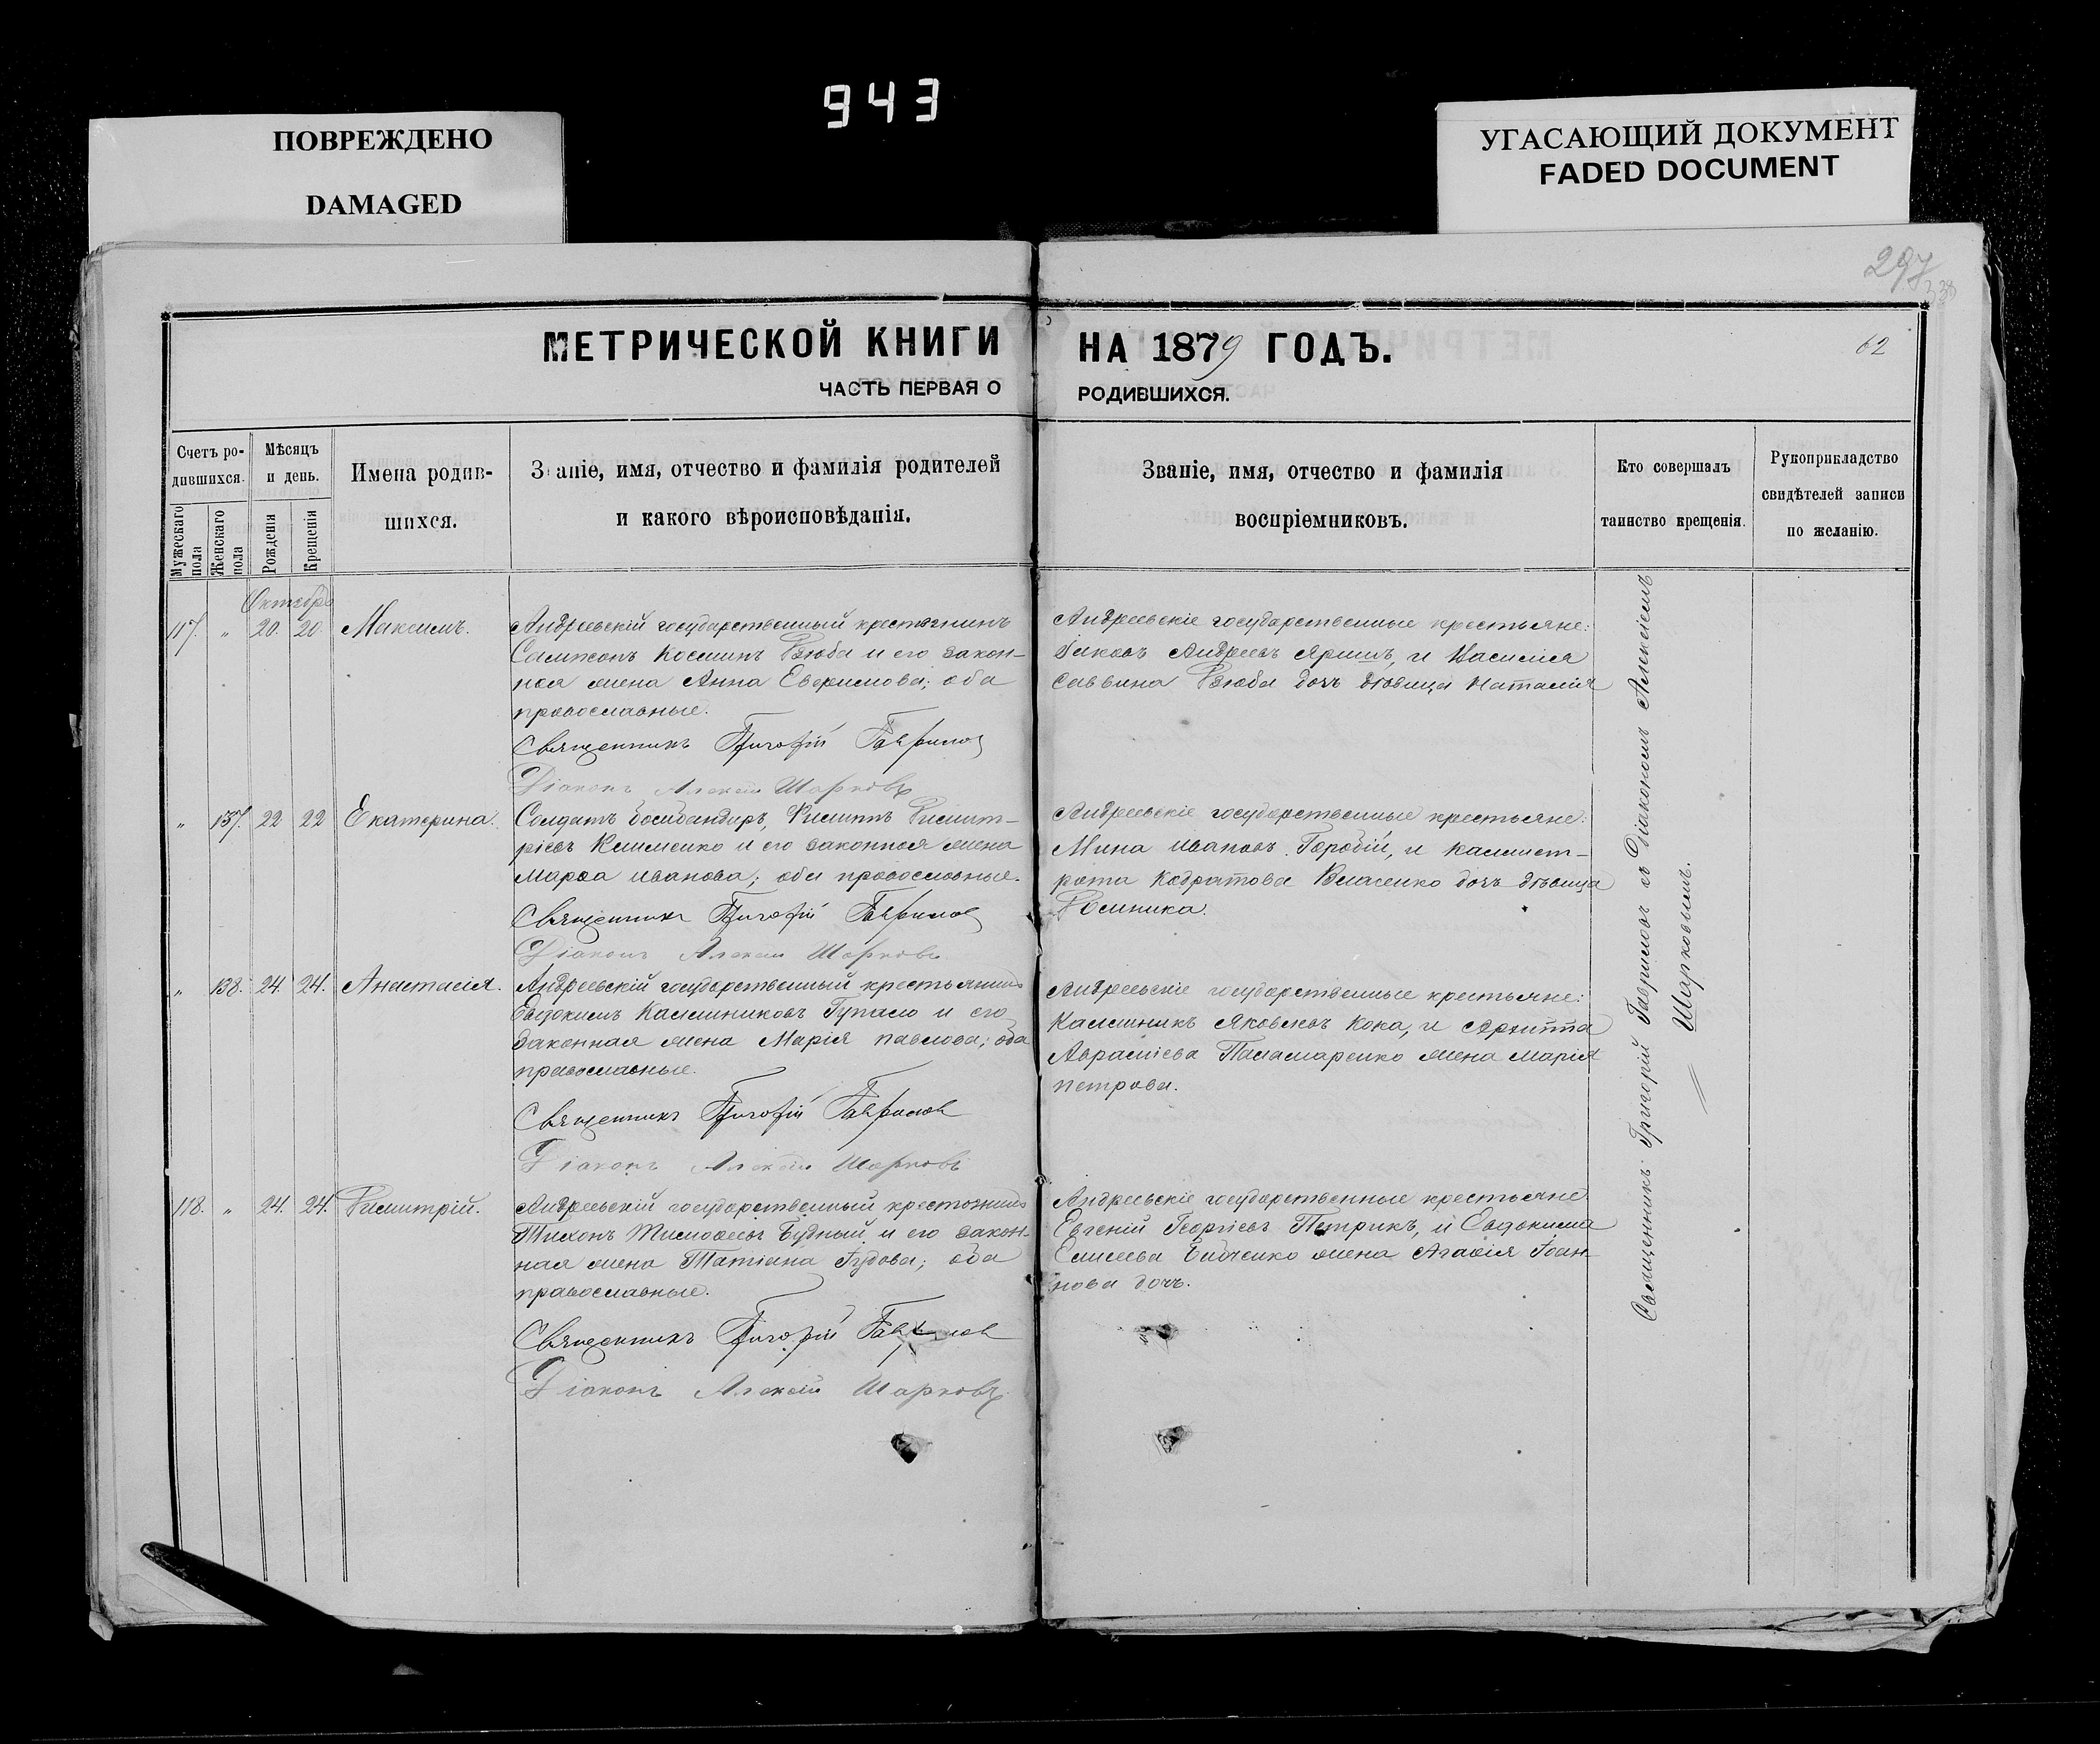 943
ПОВРЕЖДЕНО
DAMAGED
УГАСАЮЩИЙ ДОКУМЕНТ
FADED DOCUMENT
297
62
МЕТРИЧЕСКОЙ КНИГИ НА 1879 ГОДЪ.
ЧАСТЬ ПЕРВАЯ О РОДИВШИХСЯ.
Счетъ ро-
дившихся.
Мужескаго
пола
Женскаго
пола
Мѣсяцъ
и день.
Рожденія
Крещенія
Имена родив-
шихся.
Званіе, имя, отчество и фамилія родителей
и какого вѣроисповѣданія.
Званіе, имя, отчество и фамилія
воспріемниковъ.
Кто совершалъ
таинство крещенія.
Рукоприкладство
свидѣтелей записи
по желанію.
Октябрь
117. " 20. 20. Максимъ.
Андреевскій государственный крестьянинъ
Сампсонъ Косминъ Дзюба и его закон-
ная жена Анна Евфимова; оба
православные.
Священникъ Григорій Гавриловъ
Діаконъ Алексій Шарковъ
Андреевскіе государственные крестьяне:
Іаковъ Андреевъ Яришъ, и
Саввина Дзюба дочь дѣвица Наталія
" 137. 22 22 Екатерина.
Солдатъ бомбандиръ, Филиппъ Димит-
ріевъ Клименко и его законная жена
Марѳа Иванова; оба православные.
Священникъ Григорій Гавриловъ
Діаконъ Алексій Шарковъ
Андреевскіе государственные крестьяне:
Мина Ивановъ Горобій, и Каллист-
рата Кодратова Власенко дочь дѣвица
Домника.
" 138. 24. 24. Анастасія.
Андреевскій государственный крестьянинъ
Евдокимъ Каллиниковъ Гупало и его
законная жена Марія Павлова; оба
православные.
Священникъ Григорій Гавриловъ
Діаконъ Алексій Шарковъ
Андреевскіе государственные крестьяне:
Каллиникъ Яковлевъ Кока, и Архиппа
Авраміева Паламаренко жена Марія
Петрова.
118. " 24. 24. Димитрій.
Андреевскій государственный крестьянинъ
Тихонъ Тимоѳеевъ Будный, и его закон-
ная жена Татіана; оба
православные.
Священникъ Григорій Гавриловъ
Діаконъ Алексій Шарковъ
Андреевскіе государственные крестьяне
Евгеній Георгіевъ Петрикъ, и Евдокима
Елисеева жена Агаѳія Іоан-
нова дочь.
Священникъ Григорій Гавриловъ съ Діакономъ Алексіемъ
Шарковымъ.